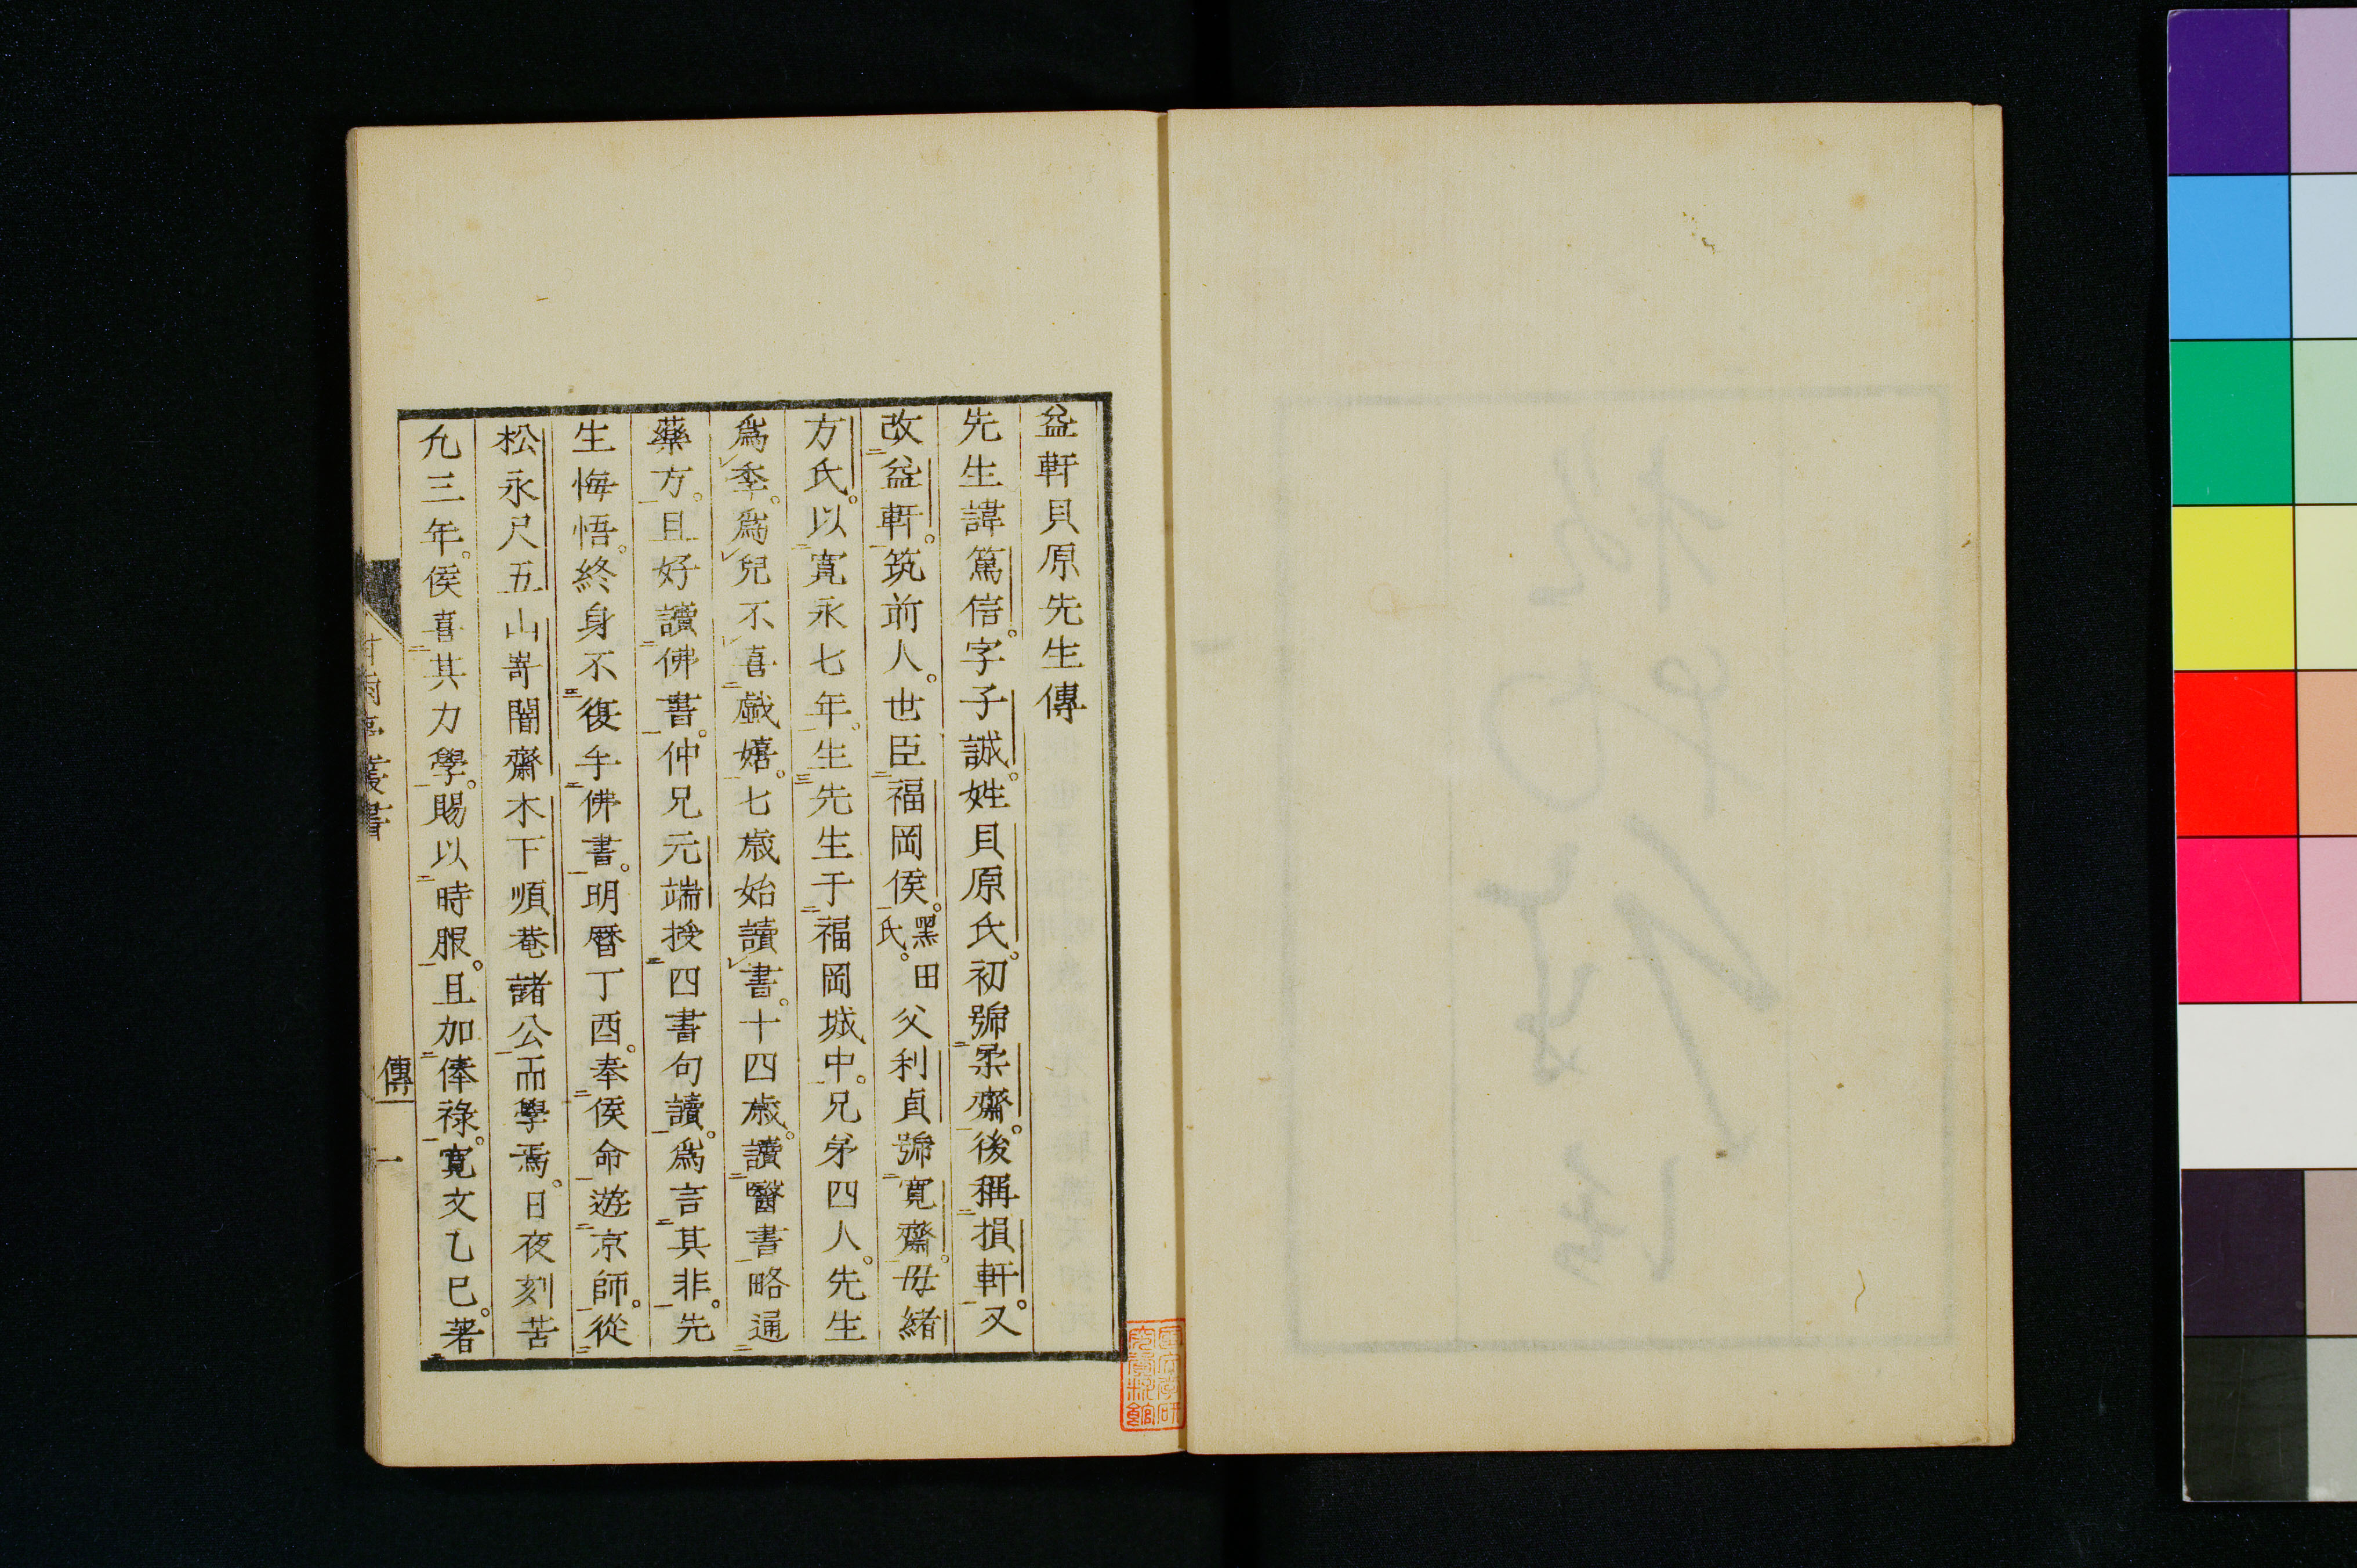 益軒貝原先生傳
先生諱篤信。字子誠。姓貝原氏。初號柔齋。後稱損軒。又
改益軒。筑前人。世臣福岡侯。黑田氏。父利貞號寬齋。母緒
方氏。以寬永七年。生先生于福岡城中。兄弟四人。先生
爲季。爲兒不喜戲嬉。七歲始讀書。十四歲。讀醫書略通
藥方。且好讀佛書。仲兄元端授四書句讀。爲言其非。先
生悔悟。終身不復手佛書。明曆丁酉。奉侯命遊京師。從
松永尺五山嵜闇齋木下順菴諸公而學焉。日夜刻苦
凢三年。侯喜其力學。賜以時服。且加俸祿。寬文乙巳。著
甘雨亭叢書
傳
一